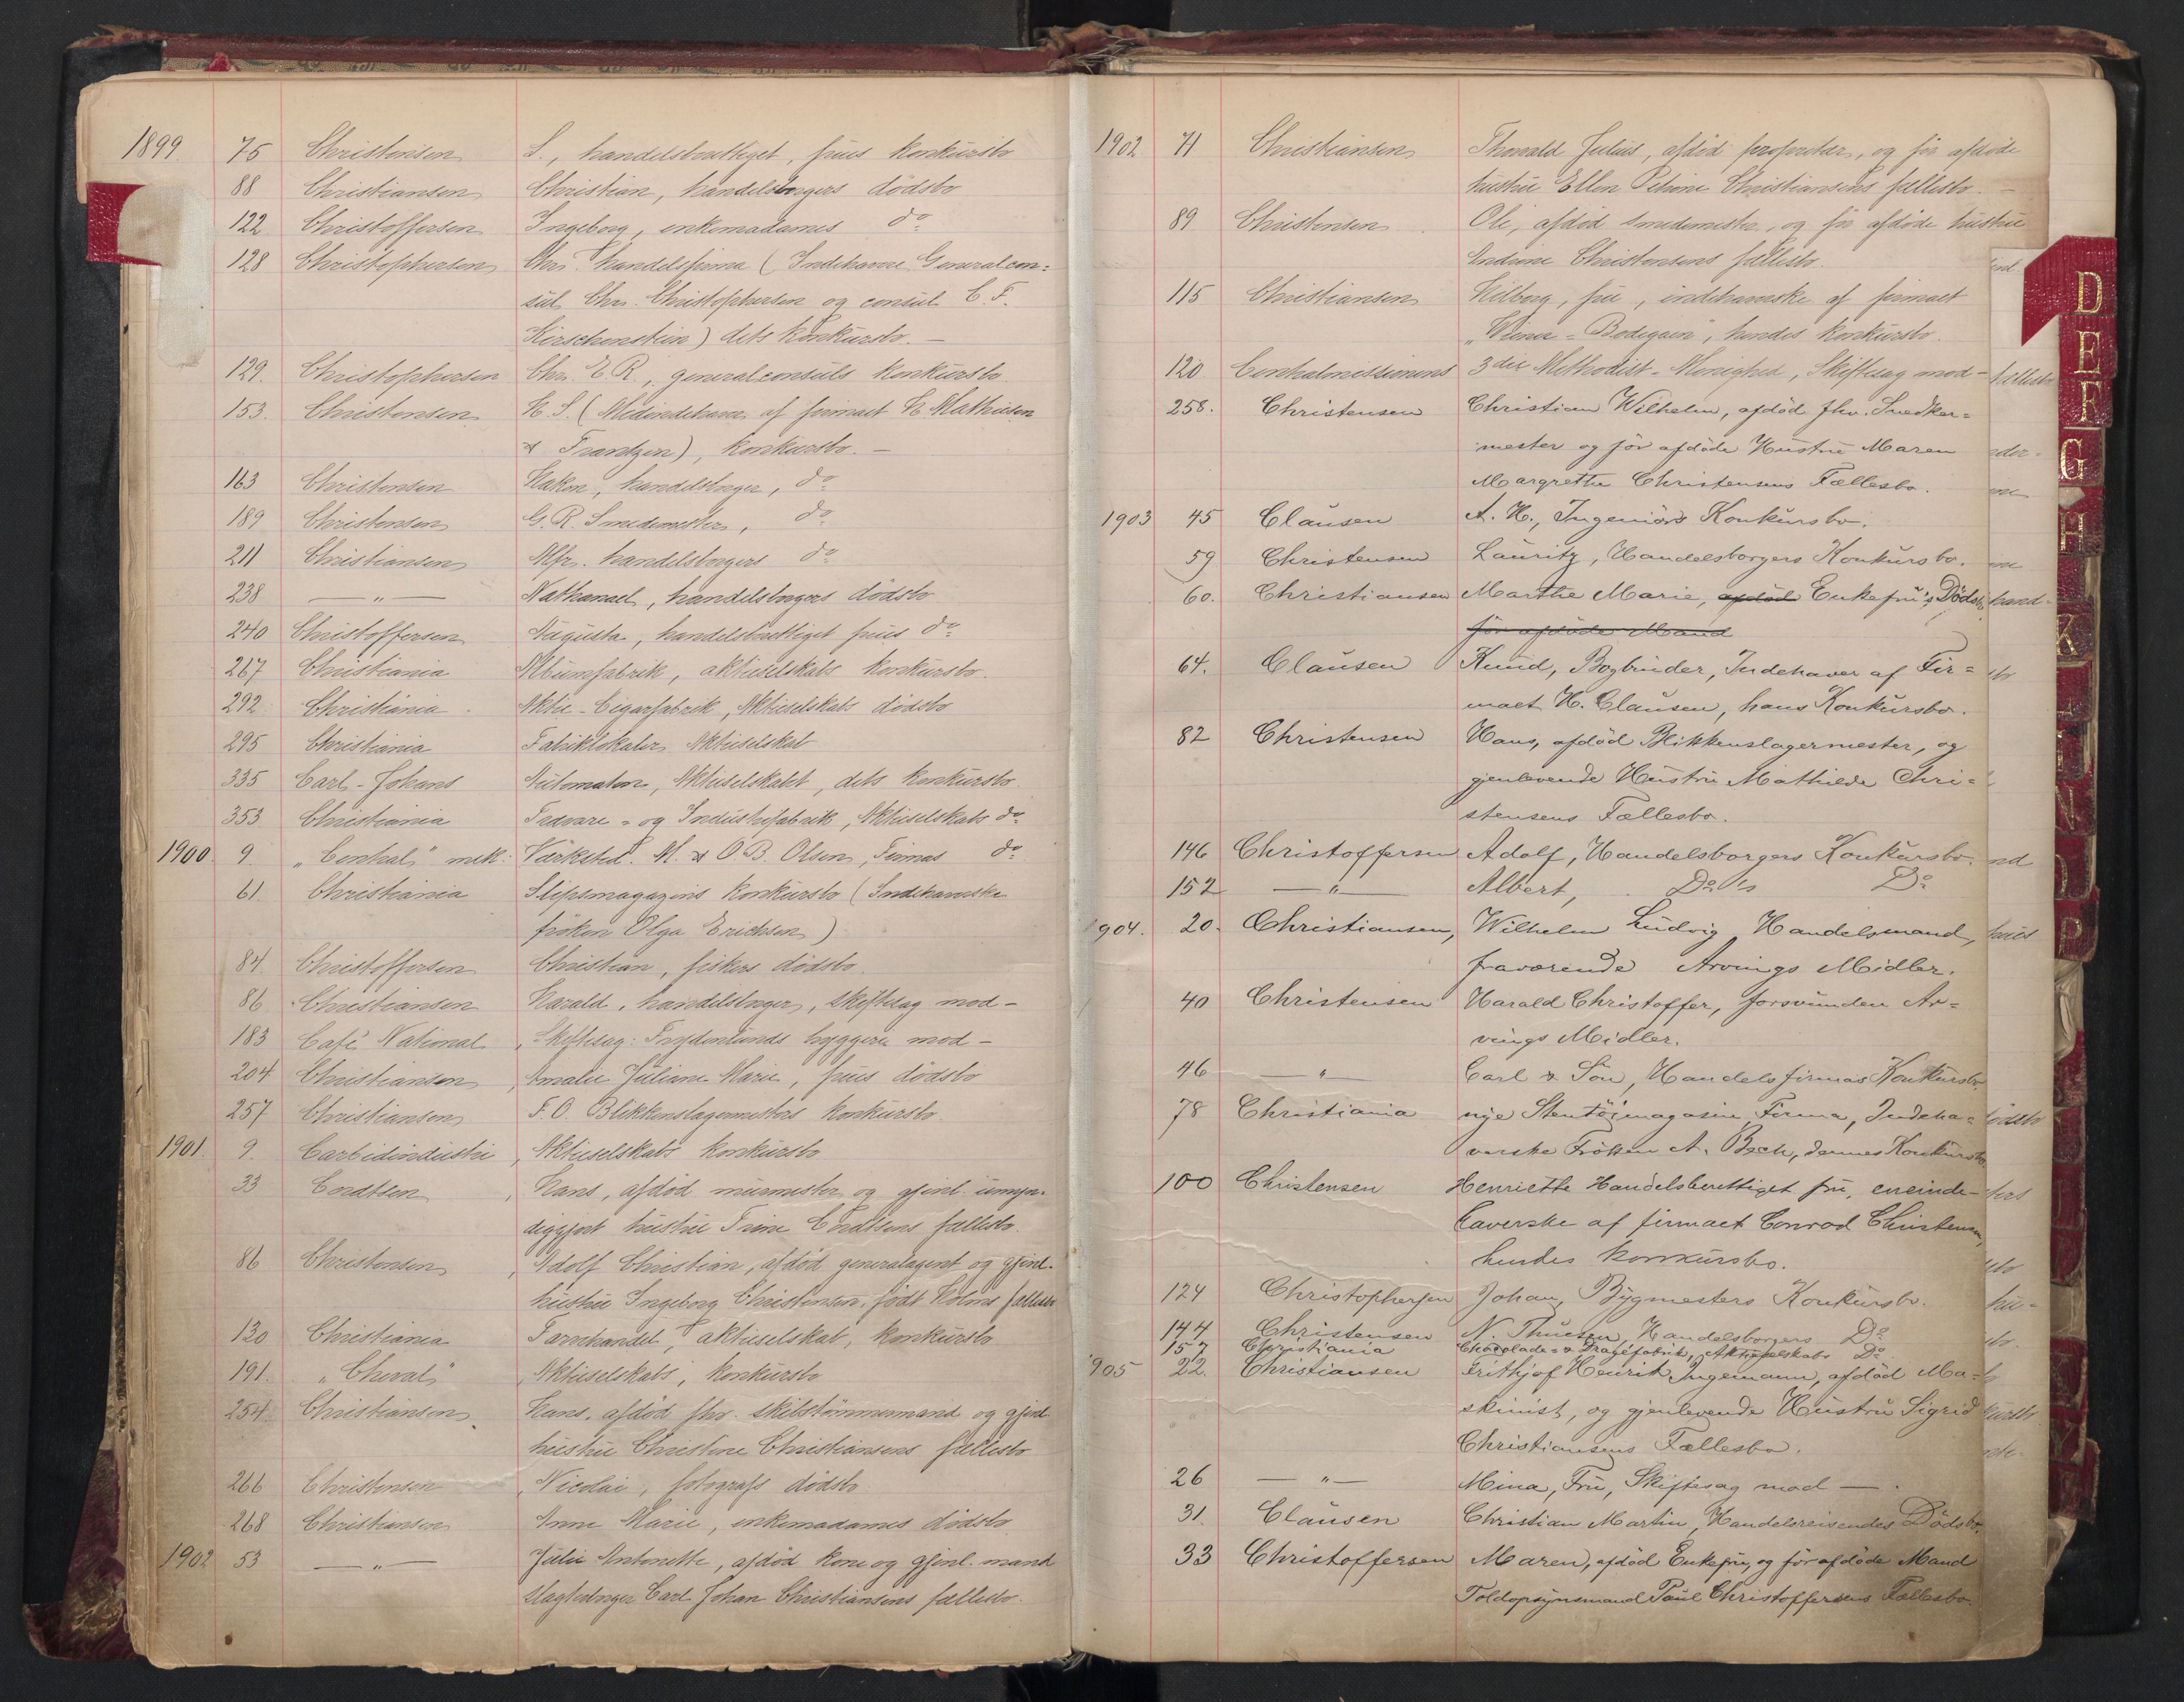 1899. 75 Christensen S., handelsberettiget, frues konkursbo
88 Christiansen Christian, handelsborgers dödsbo
122. Christoffersen Ingeborg, enkemadames do
128 Christophersen Chrs. handelsfirma (Indehavere Generalcon=
sul Chr. Christophersen og consul C. F.
Kirschenstein) dets konkursbo. —
129. Christophersen Chr. E. R., generalconsuls konkursbo
153. Christensen H. S. (Medindehaver af firmaet H. Mathiesen
& Frantzen), konkursbo. —
163 Christensen Hakon, handelsborger, do
189 Christensen G. R. Smedemester, do
211 Christiansen Alfr. handelsborgers do
238 — " — Nathanael, handelsborgers dödsbo
240 Christoffersen Augusta, handelsberettiget frues do
267 Christiania Albumfabrik, aktieselskabs konkursbo.
292 Christiania Aktie-Cigarfabrik, Aktieselskabs dödsbo
295 Christiania Fabriklokaler, Aktieselskab
335 Carl-Johans Automaten, Aktieselskabet, dets konkursbo
353 Christiania Trævare- og Industrifabrik, Aktieselskabs do
1900. 9. "Central" mek: Værksted. M. & O. B. Olsen, Firmas do
61 Christiania Slipsmagazins konkursbo (Indehaverske
fröken Olga Erichsen)
84 Christoffersen Christian, fiskers dödsbo.
86 Christiansen Harald, handelsborger, skiftesag mod —
183 Café National, Skiftesag: Frydenlunds bryggeri mod —
204 Christiansen, Amalie Juliane Marie, frues dödsbo
257 Christiansen F. O. Blikkenslagermesters konkursbo.
1901. 9. Carbidindustri, Aktieselskabs konkursbo
33 Cordtsen, Hans, afdöd murmester og gjenl. umyn-
diggjort hustru Trine Cordtsens fællesbo.
86 Christensen, Adolf Christian, afdöd generalagent og gjenl.
hustru Ingeborg Christensen, født Holms fællesbo
130 Christiania Farvehandel, aktieselskab, konkursbo
191. "Cheval" Aktieselskabs, konkursbo
254. Christiansen, Hans, afdöd fhv. skibstömmermand og gjenl.
hustru Christine Christiansens fællesbo
266 Christensen, Nicolai, fotografs dödsbo.
268 Christiansen Anne Marie, enkemadames dödsbo
1902 53 — " — Julie Antonette, afdöd kone og gjenl. mand
Slagtsvend Carl Johan Christiansens fællesbo.
1902 71 Christiansen Thorvald Julius, afdöd proprietær, og för afdöde
hustru Ellen Petrine Christiansens fællesbo. —
89. Christensen Ole, afdöd smedemester, og för afdöde hustru
Andrine Christensens fællesbo.
115 Christiansen Wilborg, frue, indehaverske af firmaet
"Wiener-Bodegaen", hendes konkursbo.
120. Centralmissionens 3die Methodist-Menighed, Skiftesag mod —
258. Christensen Christian Wilhelm, afdöde fhv. Snedker=
mester og för afdöde Hustru Maren
Margrethe Christensens Fællesbo.
1903 45 Clausen A. H., Ingeniörs Konkursbo.
59 Christensen Lauritz, Handelsborgers Konkursbo.
60. Christiansen Marthe Marie, afdöd Enkefru's Dödsbo
för afdöde Mand
64. Clausen Knud, Bogbinder, Indehaver af Fir=
maet H. Clausen, hans Konkursbo.
82 Christensen Hans, afdöd Blikkenslagermester, og
gjenlevende Hustru Mathilde Chri=
stensens Fællesbo.
146 Christoffersen Adolf, Handelsborgers Konkursbo.
152 — " — Albert, Do's Do
1904. 20. Christiansen, Wilhelm Ludvig Handelsmand,
fraværende Arvings Midler.
40 Christensen Harald Christoffer, forsvunden Ar=
vings Midler.
46 — " — Carl & Sön, Handelsfirmas Konkursbo
78 Christiania nye Stentöimagasin Firma, Indeha=
verske Fröken A. Bech, dennes Konkursbo.
100 Christensen Henriette Handelsberettiget fru, eneinde-
haverske af firmaet Conrad Christensen,
hendes konkursbo.
124 Christophersen Johan, Bygmesters Konkursbo.
144 Christensen N. Thuesen, Handelsborgers Do
157 Christiania Chocolade- & Dragéfabrik, Aktieselskabs Do
1905 22. Christiansen Frithjof Henrik Ingemann, afdöd Ma-
skinist, og gjenlevende Hustru Sigrid
Christiansens Fællesbo.
26 — " — Mina, Fru, Skiftesag mod — .
31. Clausen Christian Martin, Handelsreisendes Dödsbo.
33 Christoffersen Maren, afdöd Enkefru, og för afdöde Mand
Toldopsynsmand Paul Christoffersens Fællesbo
D
E
F
G
H
K
L
N
O
P